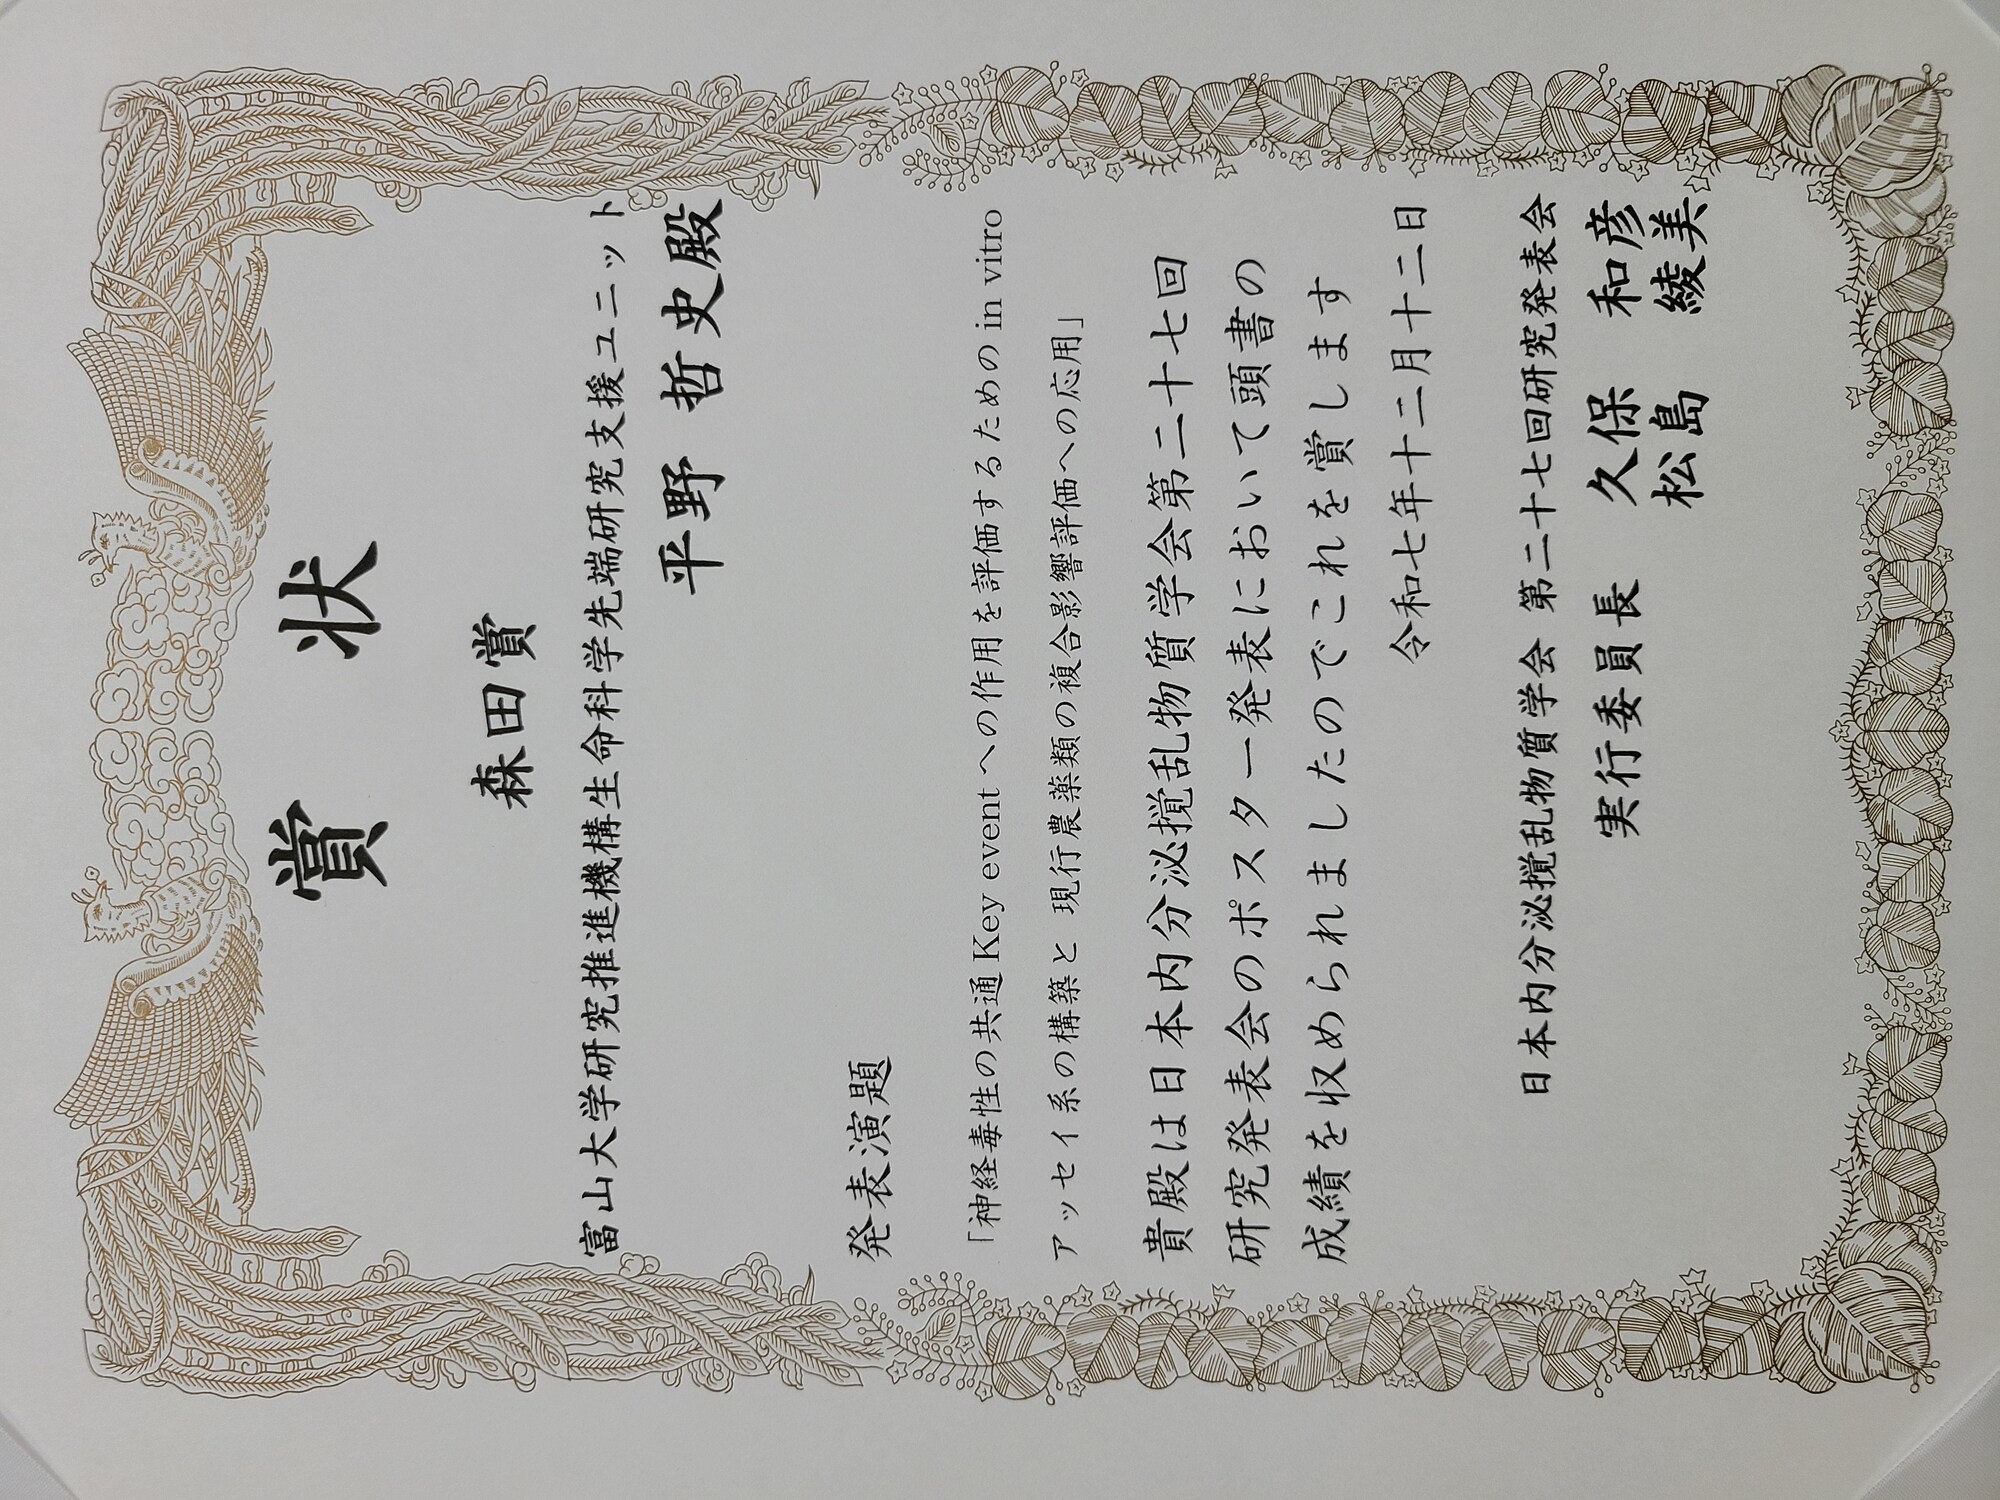 賞状
森田賞
富山大学研究推進機構生命科学先端研究支援ユニット
平野 哲史殿
発表演題
「神経毒性の共通Key eventへの作用を評価するためのin vitro
アッセイ系の構築と 現行農薬類の複合影響評価への応用」
貴殿は日本内分泌撹乱物質学会第二十七回
研究発表会のポスター発表において頭書の
成績を収められましたのでこれを賞します
令和七年十二月十二日
日本内分泌撹乱物質学会 第二十七回研究発表会
実行委員長 久保 和彦
松島 綾美